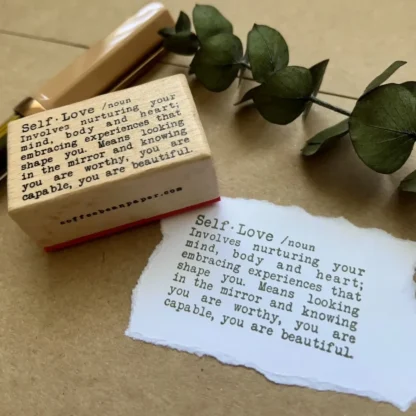 Self·Love /noun
Involves nurturing your
mind, body and heart;
embracing experiences that
shape you. Means looking
in the mirror and knowing
you are worthy, you are
capable, you are beautiful.
coffeebeanpaper.com
Self·Love /noun
Involves nurturing your
mind, body and heart;
embracing experiences that
shape you. Means looking
in the mirror and knowing
you are worthy, you are
capable, you are beautiful.